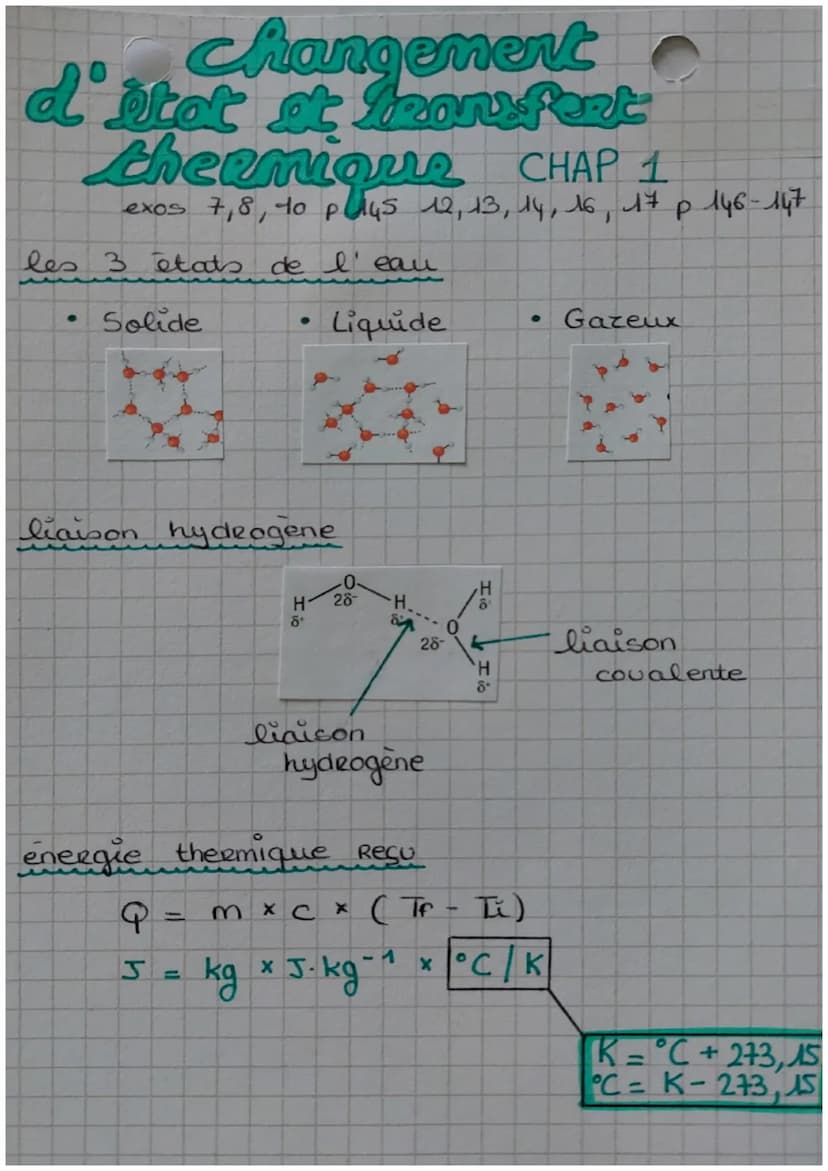 changement
d'état et transfert
thermique CHAP 1
exos 7, 8, 10 p 145 12, 13, 14, 16, 17 p 146-147
les 3 états de l'eau
• Solide • Liquide • Gazeux
liaison hydrogène
H O H H
δ+ 2δ- δ+ δ+
O
2δ-
H
δ+
liaison
covalente
liaison
hydrogène
énergie thermique REÇU
Q = m x c x (Tf - Ti)
J = kg x J.kg⁻¹ x °C / K
K = °C + 273,15
°C = K - 273,15